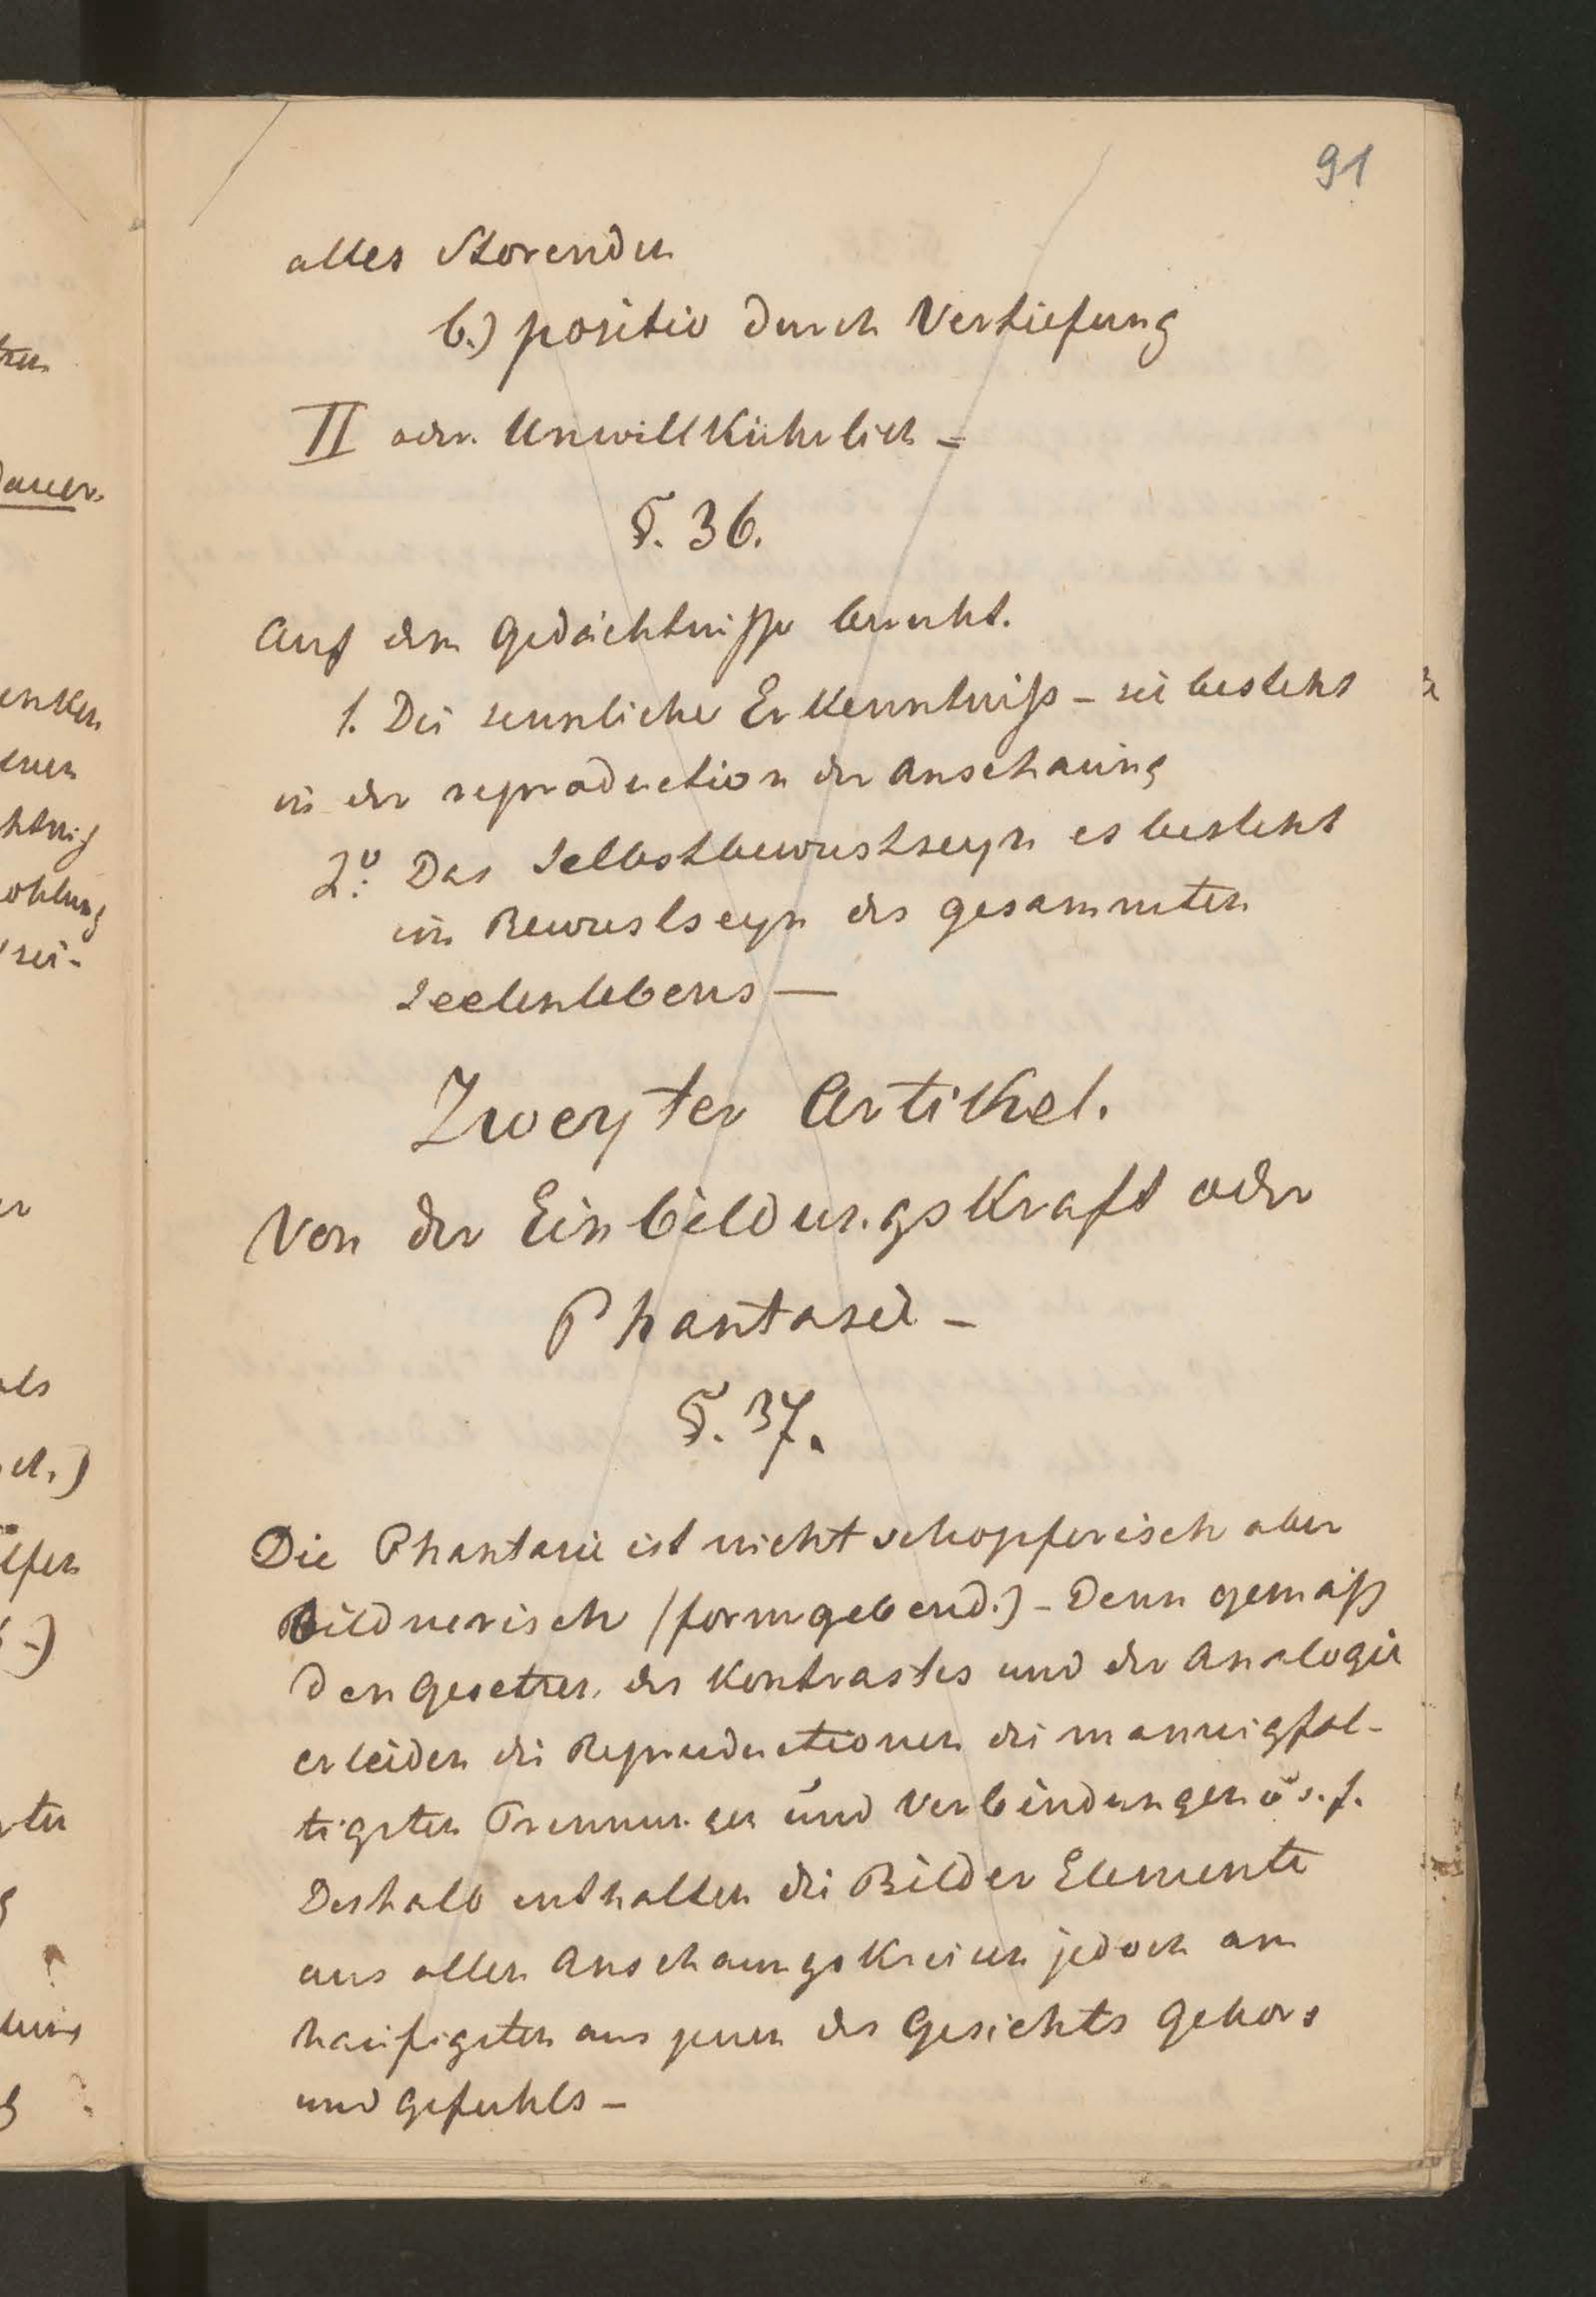 91
alles Storenden
b.) positiv durch Vertiefung
II oder. Unwillkührlich –
§. 36.
Auf dem Gedächtnisse beruht.
1. Die sinnliche Erkenntniß – sie besteht
in der reproduction der Anschauung
2º. Das Selbstbewustseyn es besteht
im Bewustseyn des gesammten
Seelenlebens —
Zweyter Artikel.
Von der Einbildungskraft oder
Phantasie –
§. 37.
Die Phantasie ist nicht schopferisch aber
Bildnerisch (formgebend.) – Denn gemäß
den Gesetzen des Kontrastes und der Analogie
erleiden die Reproductionen die mannigfal-
tigsten Trennungen und Verbindungen u s. f.
Deshalb enthalten die Bilder Elemente
aus allen Anschaungskreisen jedoch am
haüfigsten aus jenen des Gesichts Gehors
und Gefuhls –